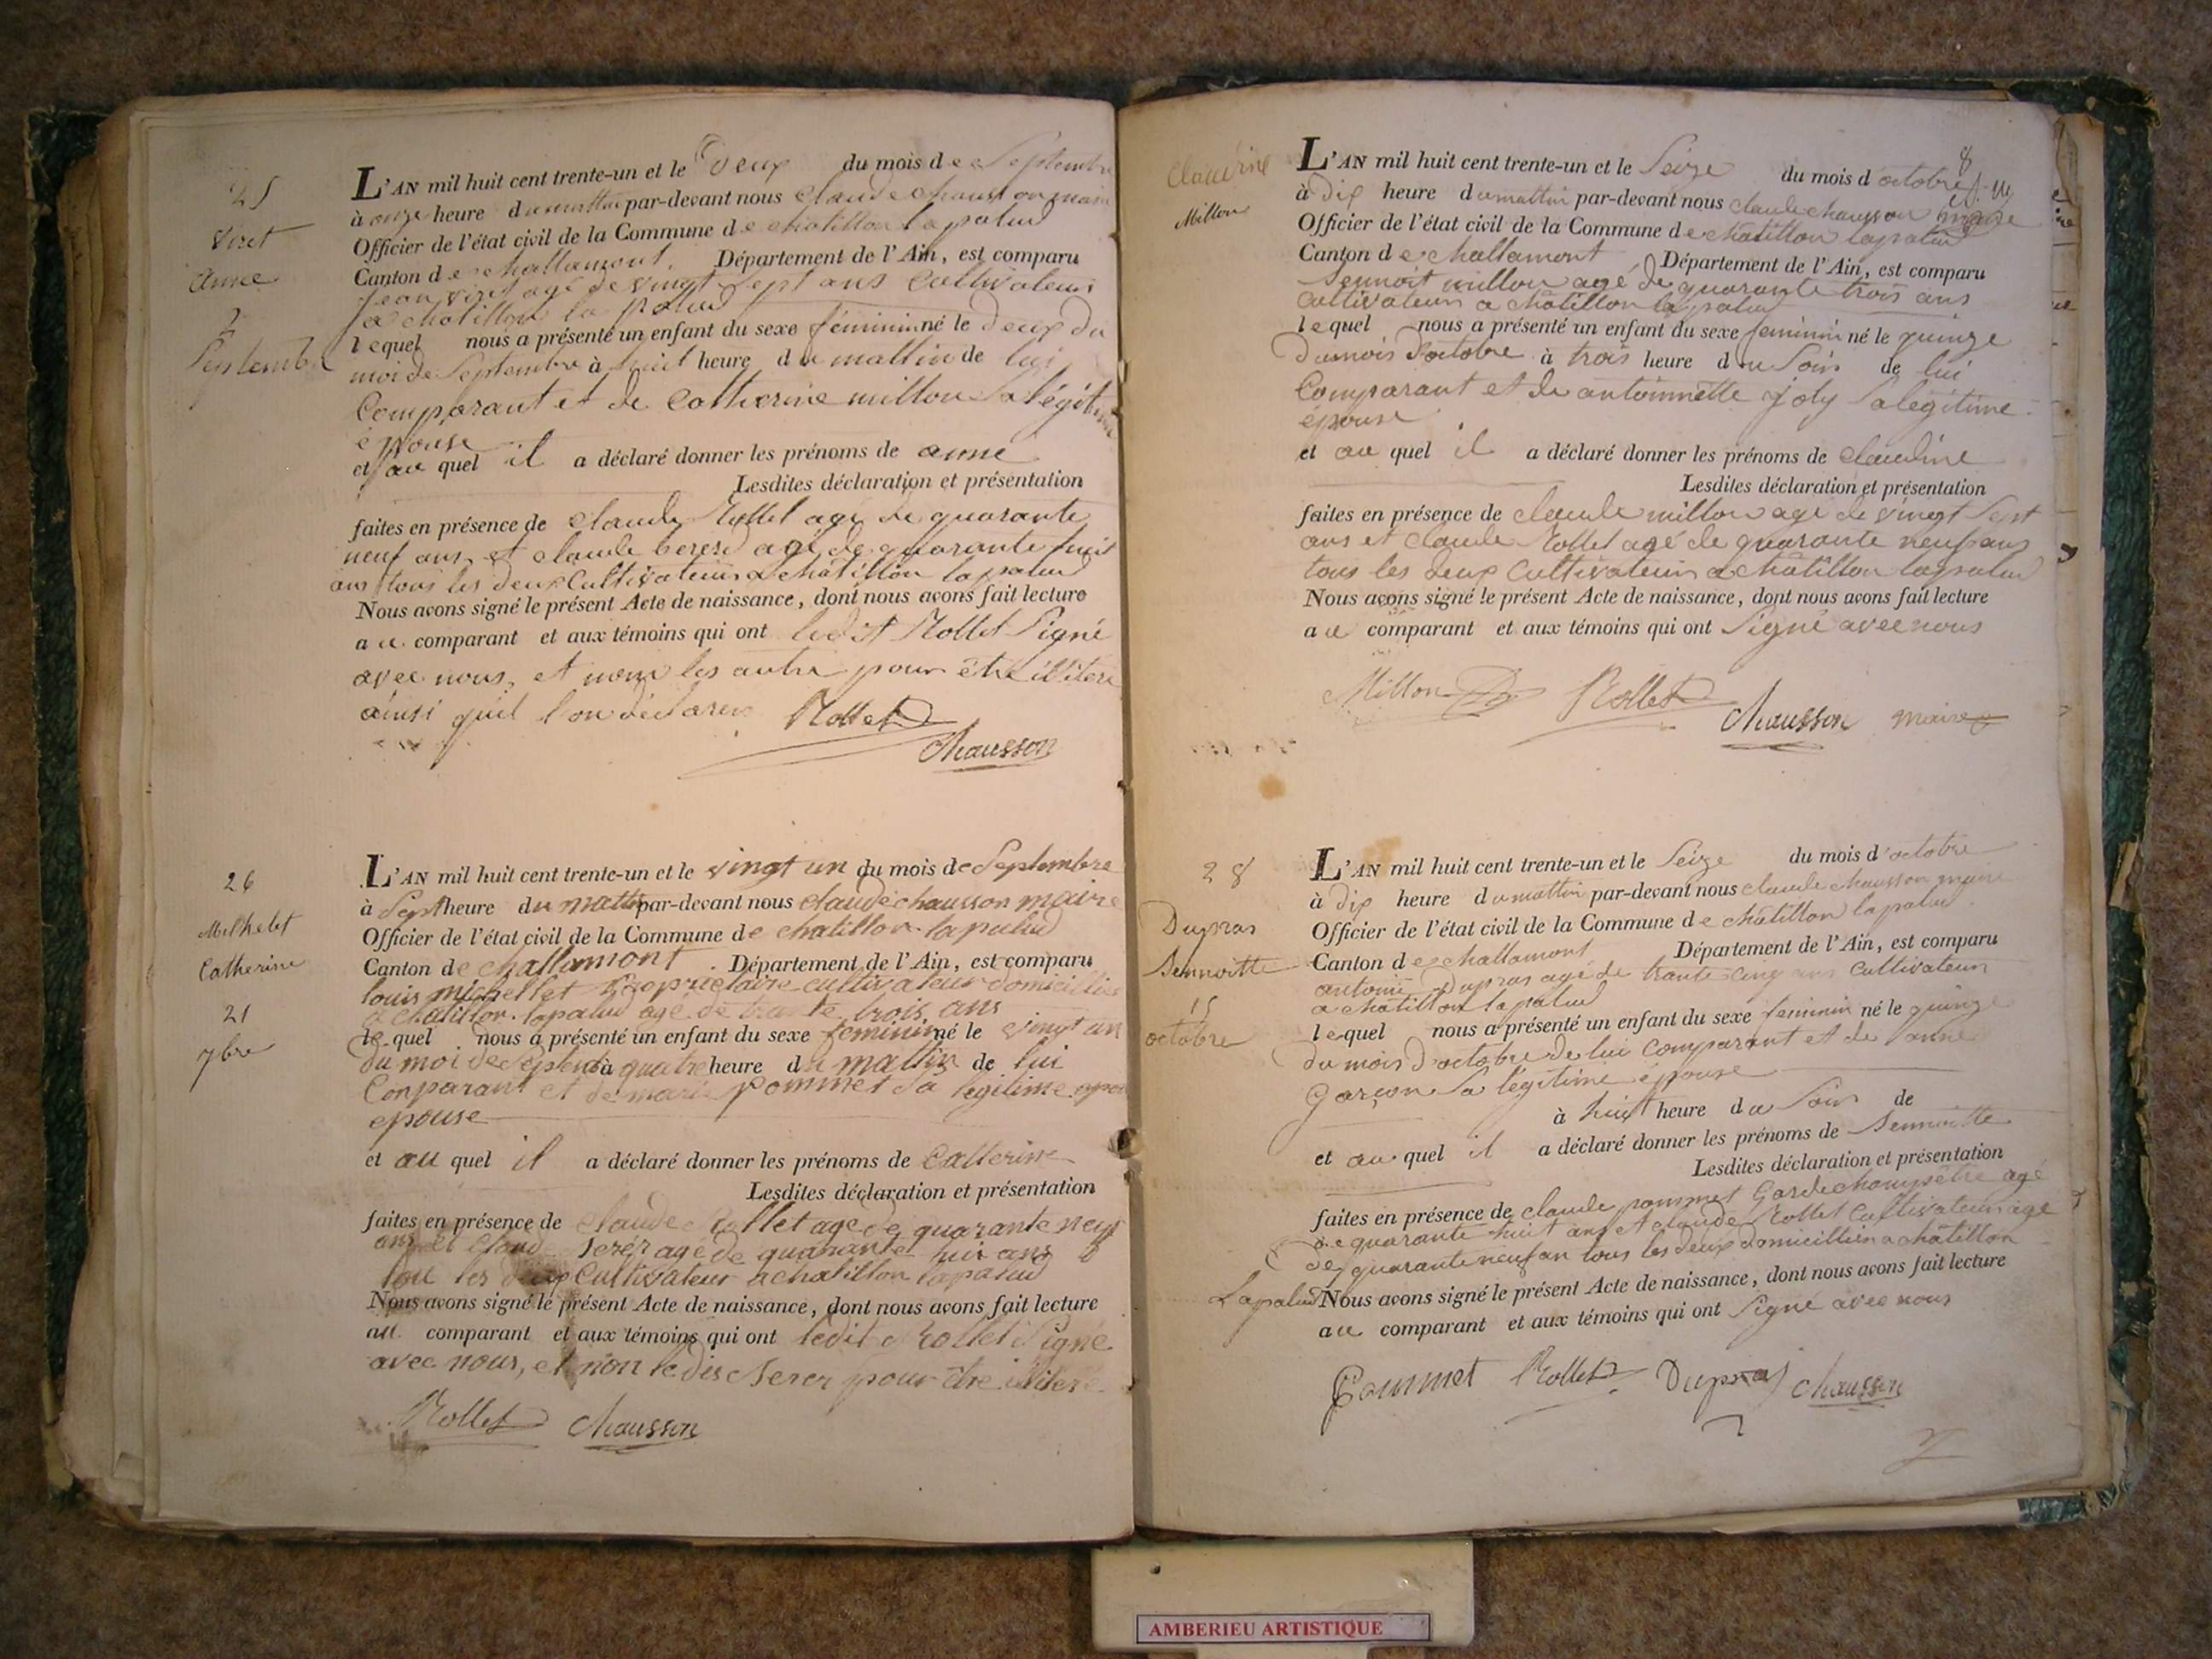 25
Viret
Anne
2
Septembre
L'AN mil huit cent trente-un et le Deux du mois de Septembre
à onze heure du mattin par-devant nous Claude chausson maire
Officier de l'état civil de la Commune de chatillon lapalud
Canton de challamont. Département de l'Ain, est comparu
Jean viret agé de vingt Sept ans Cultivateur
a chatillon la palud
lequel nous a présenté un enfant du sexe féminin né le deux du
moi de Septembre à huit heure du mattin de lui
Comparant et de Catherine millon Sa légitime
épouse
et au quel il a déclaré donner les prénoms de anne
Lesdites déclaration et présentation
faites en présence de claude Rollet agé de quarante
neuf ans et claude agé de quarante huit
ans tous les deux Cultivateurs a châtillon lapalud
Nous avons signé le présent Acte de naissance, dont nous avons fait lecture
au comparant et aux témoins qui ont ledit Rollet Signé
avec nous, et non les autre pour être illiteré
ainsi quil l'on déclarer Rollet
Chausson
26
Michelet
Catherine
21
7bre
L'AN mil huit cent trente-un et le vingt un du mois de Septembre
à Sept heure du mattin par-devant nous claude chausson maire
Officier de l'état civil de la Commune de chatillon lapalud
Canton de challamont Département de l'Ain, est comparu
louis michellet Propriétaire cultivateur domicillié
a chatillon lapalud agé de trante trois ans
lequel nous a présenté un enfant du sexe feminin né le vingt un
du moi de Septenb à quatre heure du mattin de lui
Conparant et de marie pommet Sa legitime
epouse
et au quel il a déclaré donner les prénoms de Catterine
Lesdites déclaration et présentation
faites en présence de claude Rollet agé de quarante neuf
ans et claude agé de quarante huit ans
tou les deux Cultivateur a chatillon lapalud
Nous avons signé le présent Acte de naissance, dont nous avons fait lecture
au comparant et aux témoins qui ont ledit Rollet Signé
avec nous, et non le dis pour être illiteré
Rollet Chausson
Claudine
Millon
8
L'AN mil huit cent trente-un et le Seize du mois d'octobre
à dix heure du mattin par-devant nous claude chausson maire
Officier de l'état civil de la Commune de châtillon lapalud
Canton de challamont Département de l'Ain, est comparu
Bennoit millon agé de quarante trois ans
Cultivateur a châtillon la palud
lequel nous a présenté un enfant du sexe feminin né le quinze
du mois d'octobre à trois heure du Soir de lui
Comparant et de antoinnette Joly Sa légitime
épouse
et au quel il a déclaré donner les prénoms de claudine
Lesdites déclaration et présentation
faites en présence de claude millon agé de vingt Sept
ans et claude Rollet agé de quarante neuf ans
tous les deux Cultivateur a châtillon lapalud
Nous avons signé le présent Acte de naissance, dont nous avons fait lecture
au comparant et aux témoins qui ont Signé avec nous
Millon Rollet
Chausson maire
28
Dupras
Bennoitte
15
octobre
L'AN mil huit cent trente-un et le Seize du mois d'octobre
à dix heure du mattin par-devant nous claude chausson maire
Officier de l'état civil de la Commune de châtillon lapalud
Canton de challamont Département de l'Ain, est comparu
antoine Dupras agé de trante cinq ans Cultivateur
a châtillon lapalud
lequel nous a présenté un enfant du sexe feminin né le quinze
du mois d'octobre de lui comparant et de anne
Garçon Sa légitime épouse
à huit heure du Soir de
et au quel il a déclaré donner les prénoms de Bennoitte
Lesdites déclaration et présentation
faites en présence de claude pommet Gardechampêtre agé
de quarante huit ans et claude Rollet Cultivateur agé
de quarante neuf an tous les deux domicillier a châtillon
Lapalud Nous avons signé le présent Acte de naissance, dont nous avons fait lecture
au comparant et aux témoins qui ont Signé avec nous
Pommet Rollet Dupras Chausson
AMBERIEU ARTISTIQUE